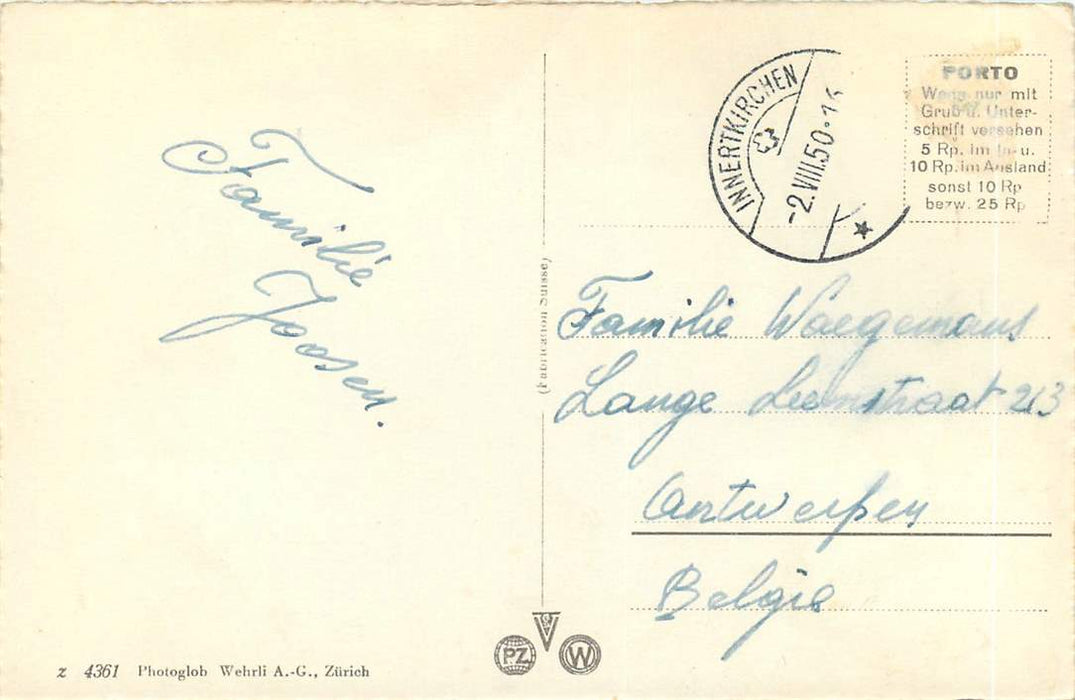 Familie
Joosen.
INNERTKIRCHEN
-2.VIII.50
PORTO
Wenn nur mit
Gruß u. Unter-
schrift versehen
5 Rp. im In- u.
10 Rp. im Ausland
sonst 10 Rp
bezw. 25 Rp
(Fabrication Suisse)
Familie Waegemans
Lange Leemstraat 213
Antwerpen
België
PZ
V
W
z 4361 Photoglob Wehrli A.-G., Zürich